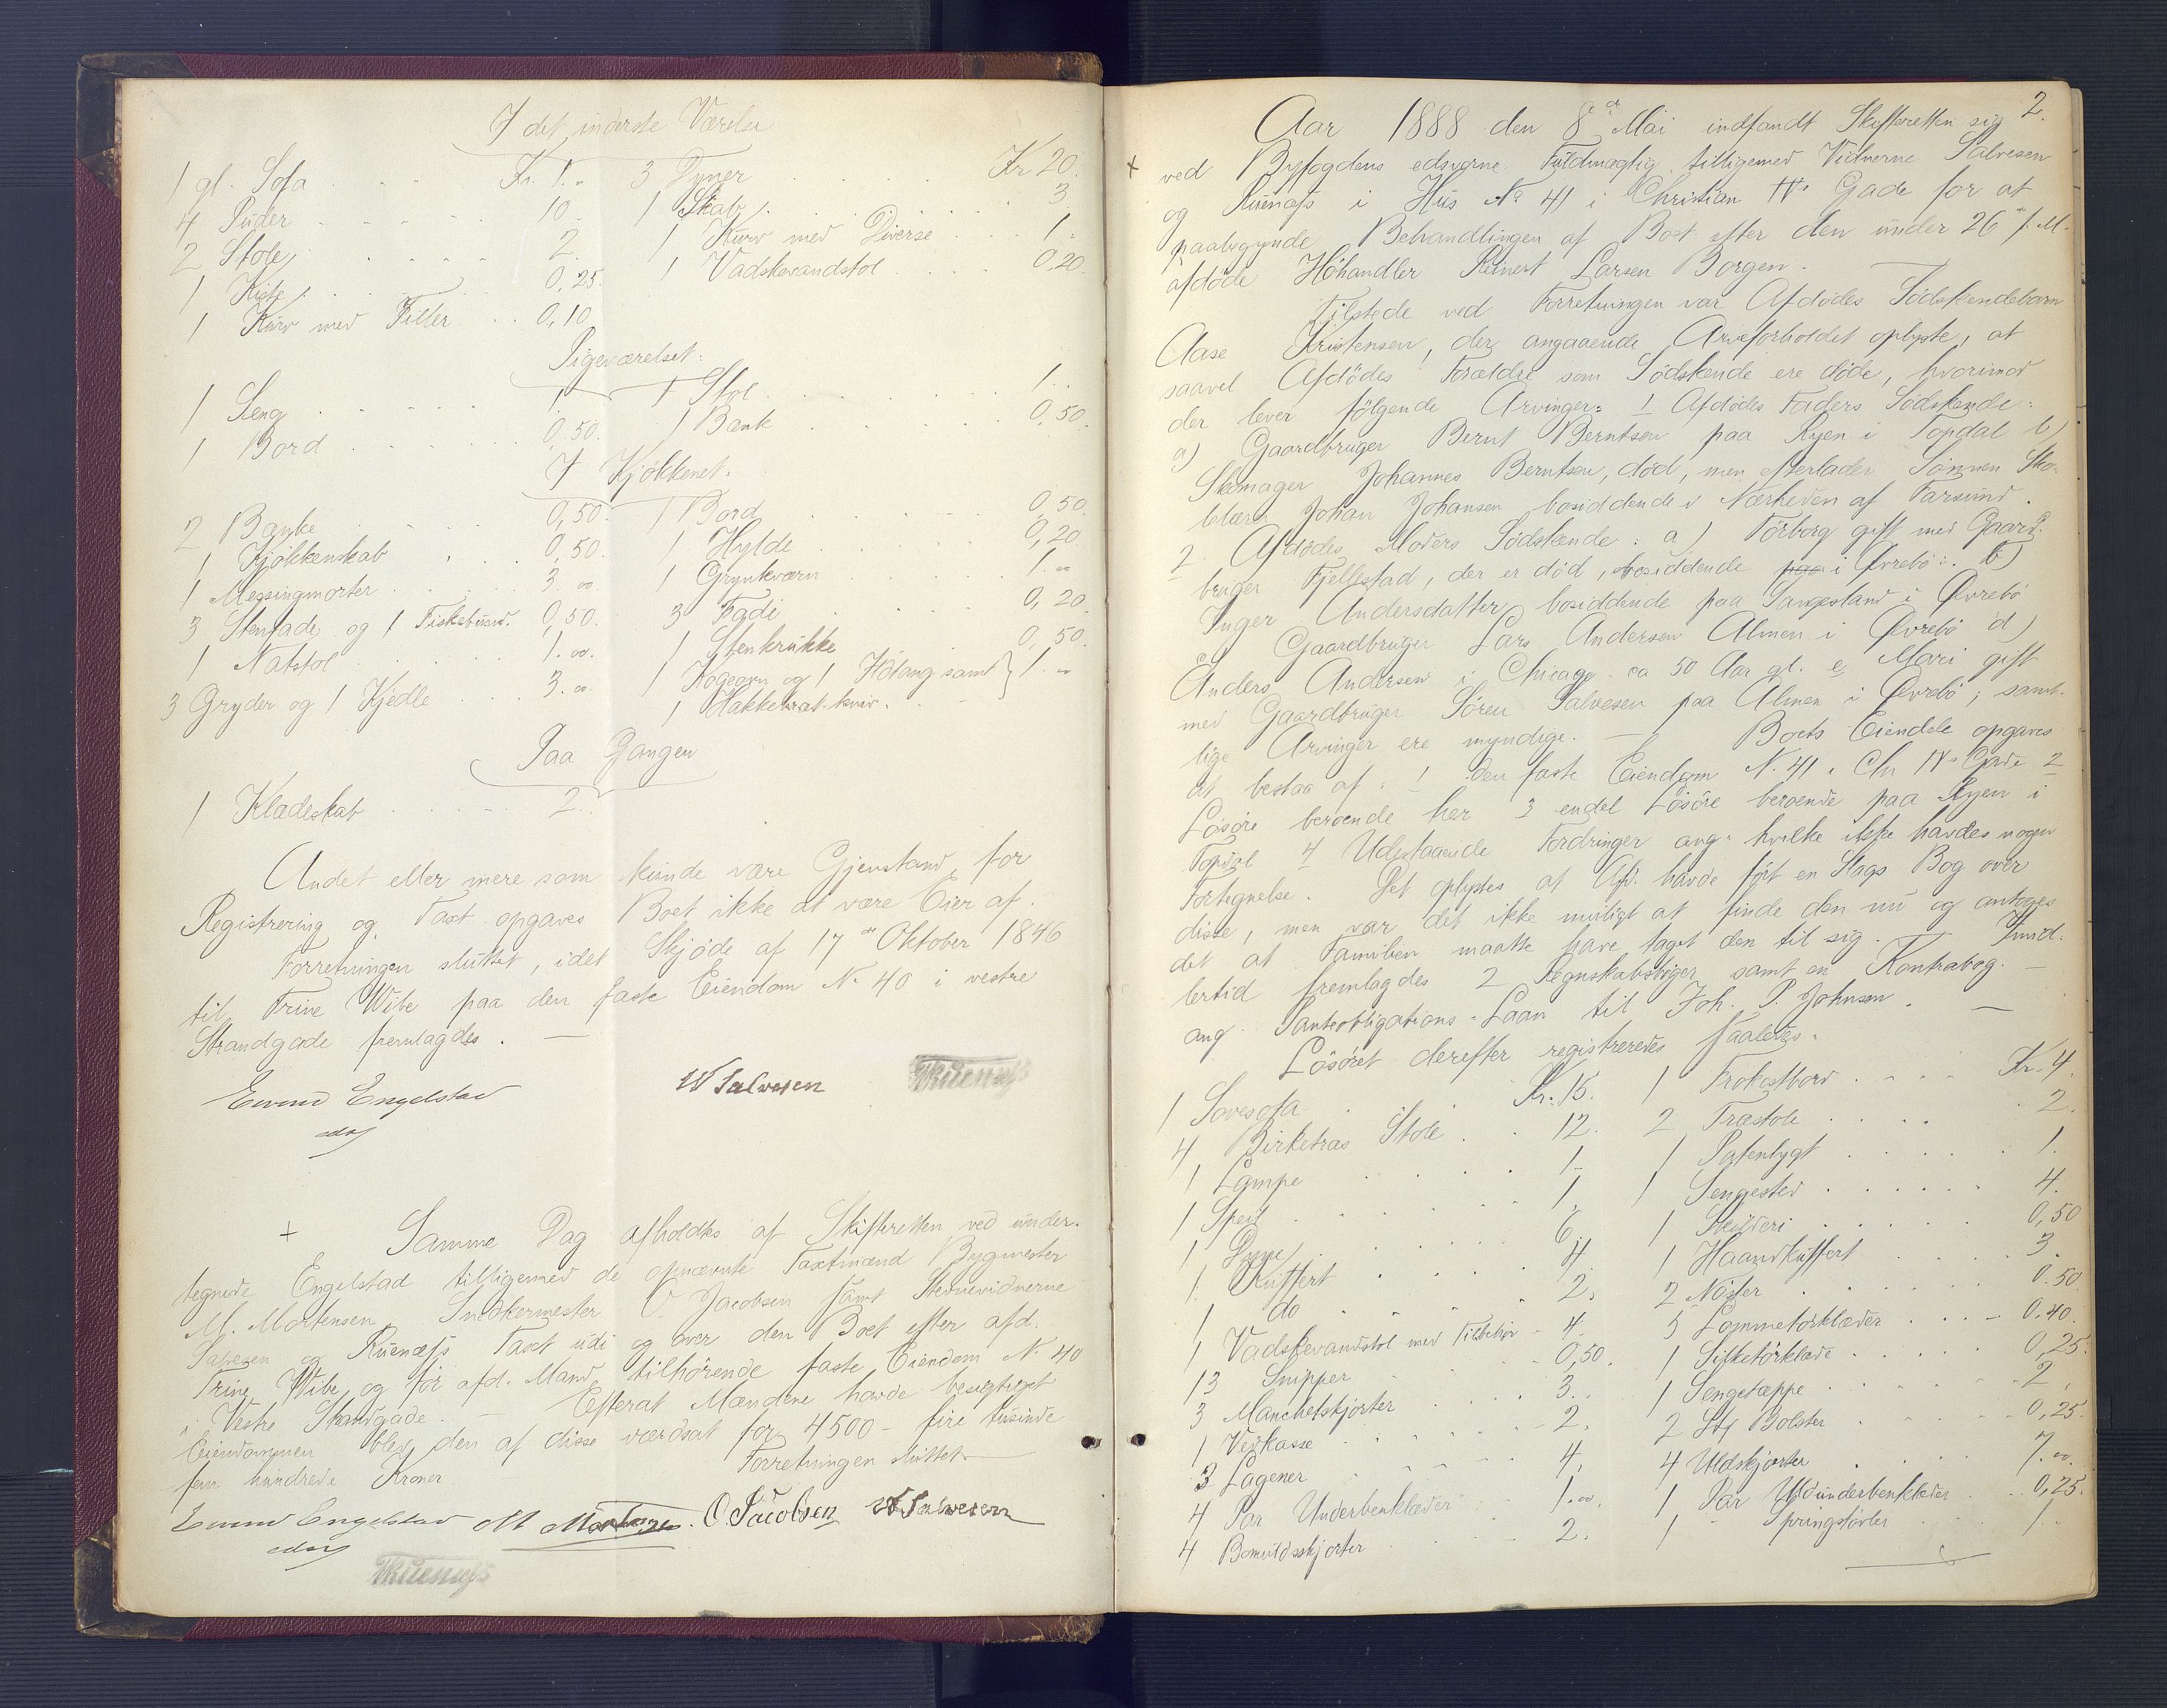 I det inderste Værelse
1 gl. Sofa Kr. 1.. 3 Dyner Kr 20.
4 Puder 10 - 1 Skab 3.
2 Stole 2. 1 Kurv med Diverse 1 -
1 Kiste 0,25. 1 Vadskevandstol 0,20.
1 Kurv med Filler 0,10
Pigeværelset:
1 Seng 1 1 Stol 1..
1 Bord 0,50. 1 Bænk 0,50.
I Kjøkkenet.
2 Bænke 0,50. 1 Bord 0,50.
1 Kjøkkenskab 0,50. 1 Hylde 0,20
1 Messingmorter 3.00 1 Grynkværn 1.00
3 Stenfade og 1 Fiskebund. 0,50. 3 Fade 0,20
1 Natstol 1.00. 1 Stenkrukke 0,50.
3 Gryder og 1 Kjedle 3.00 1 Kogeovn og 1 samt 1.00
1 Hakkebræt-kniv.
Paa Gangen
1 Klædeskab 2..
Andet eller mere som kunde være Gjenstand for
Registrering og Taxt opgaves Boet ikke at være Eier af.
Forretningen sluttet, idet Skjøde af 17de Oktober 1846
til Trine Wibe paa den faste Eiendom N. 40 i vestre
Strandgade fremlagdes. —
Eivind Engelstad W Salvesen Ruenæss
edsv
+ Samme Dag afholdtes af Skifteretten ved under-
tegnede Engelstad tilligemed de opnævnte Taxtmænd Bygmester
M. Mortensen, Snedkermester O. Jacobsen samt Stevnevidnerne
Salvesen og Ruenæss Taxt udi og over den Boet efter afd.
Trine Wibe og før afd. Mand tilhørende faste Eiendom N. 40
i Vestre Strandgade. — Efterat Mændene havde besigtiget
Eiendommen blev den af disse værdsat for 4500 - fire tusinde
fem hundrede Kroner. Forretningen sluttet. —
Eivind Engelstad M Mortensen. O. Jacobsen W Salvesen
edsv
Ruenæss
2.
Aar 1888 den 8de Mai indfandt Skifteretten sig
+ ved Byfogdens edsvorne Fuldmægtig tilligemed Vidnerne Salvesen
og Ruenæss i Hus No 41 i Christian IVs Gade for at
paabegynde Behandlingen af Boet efter den under 26de f. M.
afdøde Höhandler Reinert Larsen Borgen. —
Tilstede ved Forretningen var Afdødes Södskendebarn
Aase Kristensen, der angaaende Arveforholdet oplyste, at
saavel Afdødes Forældre som Södskende ere döde, hvorimod
der lever følgende Arvinger: 1 Afdødes Faders Södskende:
a) Gaardbruger Bernt Berntsen paa Ryen i Topdal b)
Skomager Johannes Berntsen, död, men efterlader Sönnen Sko-
 Johan Johansen bosiddende i Nærheden af Farsund.
2 Afdödes Moders Södskende: a) Torborg gift med Gaard-
bruger Fjellestad, der er död, bosiddende paa i Øvrebö: b)
Inger Andersdatter bosiddende paa i Øvrebö
c) Gaardbruger Lars Andersen Almen i Øvrebö d)
Anders Andersen i Chicago ca 50 Aar gl. e Mari gift
med Gaardbruger Sören Salvesen paa Almen i Øvrebö; samt-
lige Arvinger ere myndige. — Boets Eiendele opgaves
at bestaa af: 1 den faste Eiendom N. 41 i Chr IVs Gade 2
Lösöre beroende her 3 endel Lösöre beroende paa Ryen i
Topdal 4 Udestaaende Fordringer ang. hvilke ikke havdes nogen
Fortegnelse. Det oplystes at Afd. havde fört en Slags Bog over
disse, men var det ikke muligt at finde den nu og antoges
det at Familien maatte have taget den til sig. — Imid-
lertid fremlagdes 2 Regnskabsböger samt en Kontrabog. —
ang. Panteobligations-Laan til Joh. P. Johnsen. —
Lösöret derefter registreredes saaledes.
1 Sovesofa Kr. 15. 1 Frokostbord Kr. 4.
4 Birketræs Stole 12. 2 Træstole 2.
1 Lampe 1.. 1 Patentlygt 1.
1 Speil 1. 1 Sengested 4.
1 Dyne 6. 1 Skilderi 0,50
1 Kuffert 4 1 Haandkuffert 3.
1 do 2. 2 0.50
1 Vadskevandstol med Tilbehör 4. 5 Lommetörklæder 0.40.
13 Snipper 0,50. 1 Silketörklæde 0,25.
3 Manchetskjorter 3.. 1 Sengetæppe 2.
1 Vedkasse 2. 2 Stk Bolster 0,25.
3 Lagener 4. 4 Uldskjorter 7.00.
4 Par Underbenklæder 1.00. 1 Par Uldunderbenklæder 0,25.
4 Bomuldsskjorter 2. 1 " Springstövler 1..